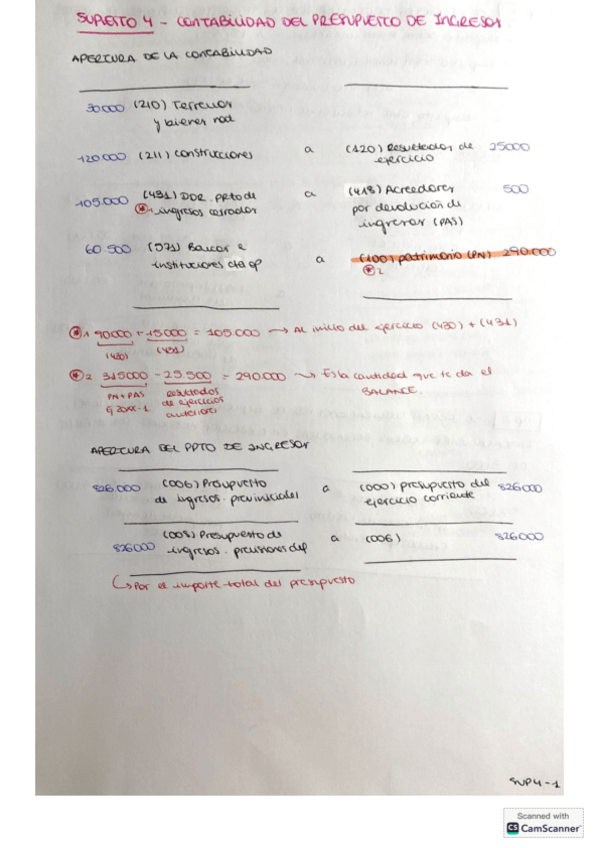 SUPUESTO 4 - CONTABILIDAD DEL PRESUPUESTO DE INGRESOS
APERTURA DE LA CONTABILIDAD
30000 (210) Terrenos
y bienes nat
120000 (211) construcciones a (120) Resultados de 25000
ejercicio
105.000 (431) DDR. ppto de a (418) Acreedores 500
*1 ingresos cerrados por devolución de
ingresos (PAS)
60.500 (571) Bancos e a (100) patrimonio (PN) 290.000
instituciones cta op *2
*1 90000 + 15000 = 105.000 → Al inicio del ejercicio (430) + (431)
(430) (431)
*2 315000 - 25.500 = 290.000 → Es la cantidad que te da el
BALANCE.
PN + PAS Resultados
de ejercicios
anteriores
APERTURA DEL PPTO DE INGRESOS
826.000 (006) Presupuesto a (000) presupuesto del 826000
de ingresos. prev iniciales ejercicio corriente
(008) Presupuesto de a (006) 826.000
826000 ingresos. previsiones def
↳ Por el importe total del presupuesto
SUP4-1
Scanned with
CS CamScanner